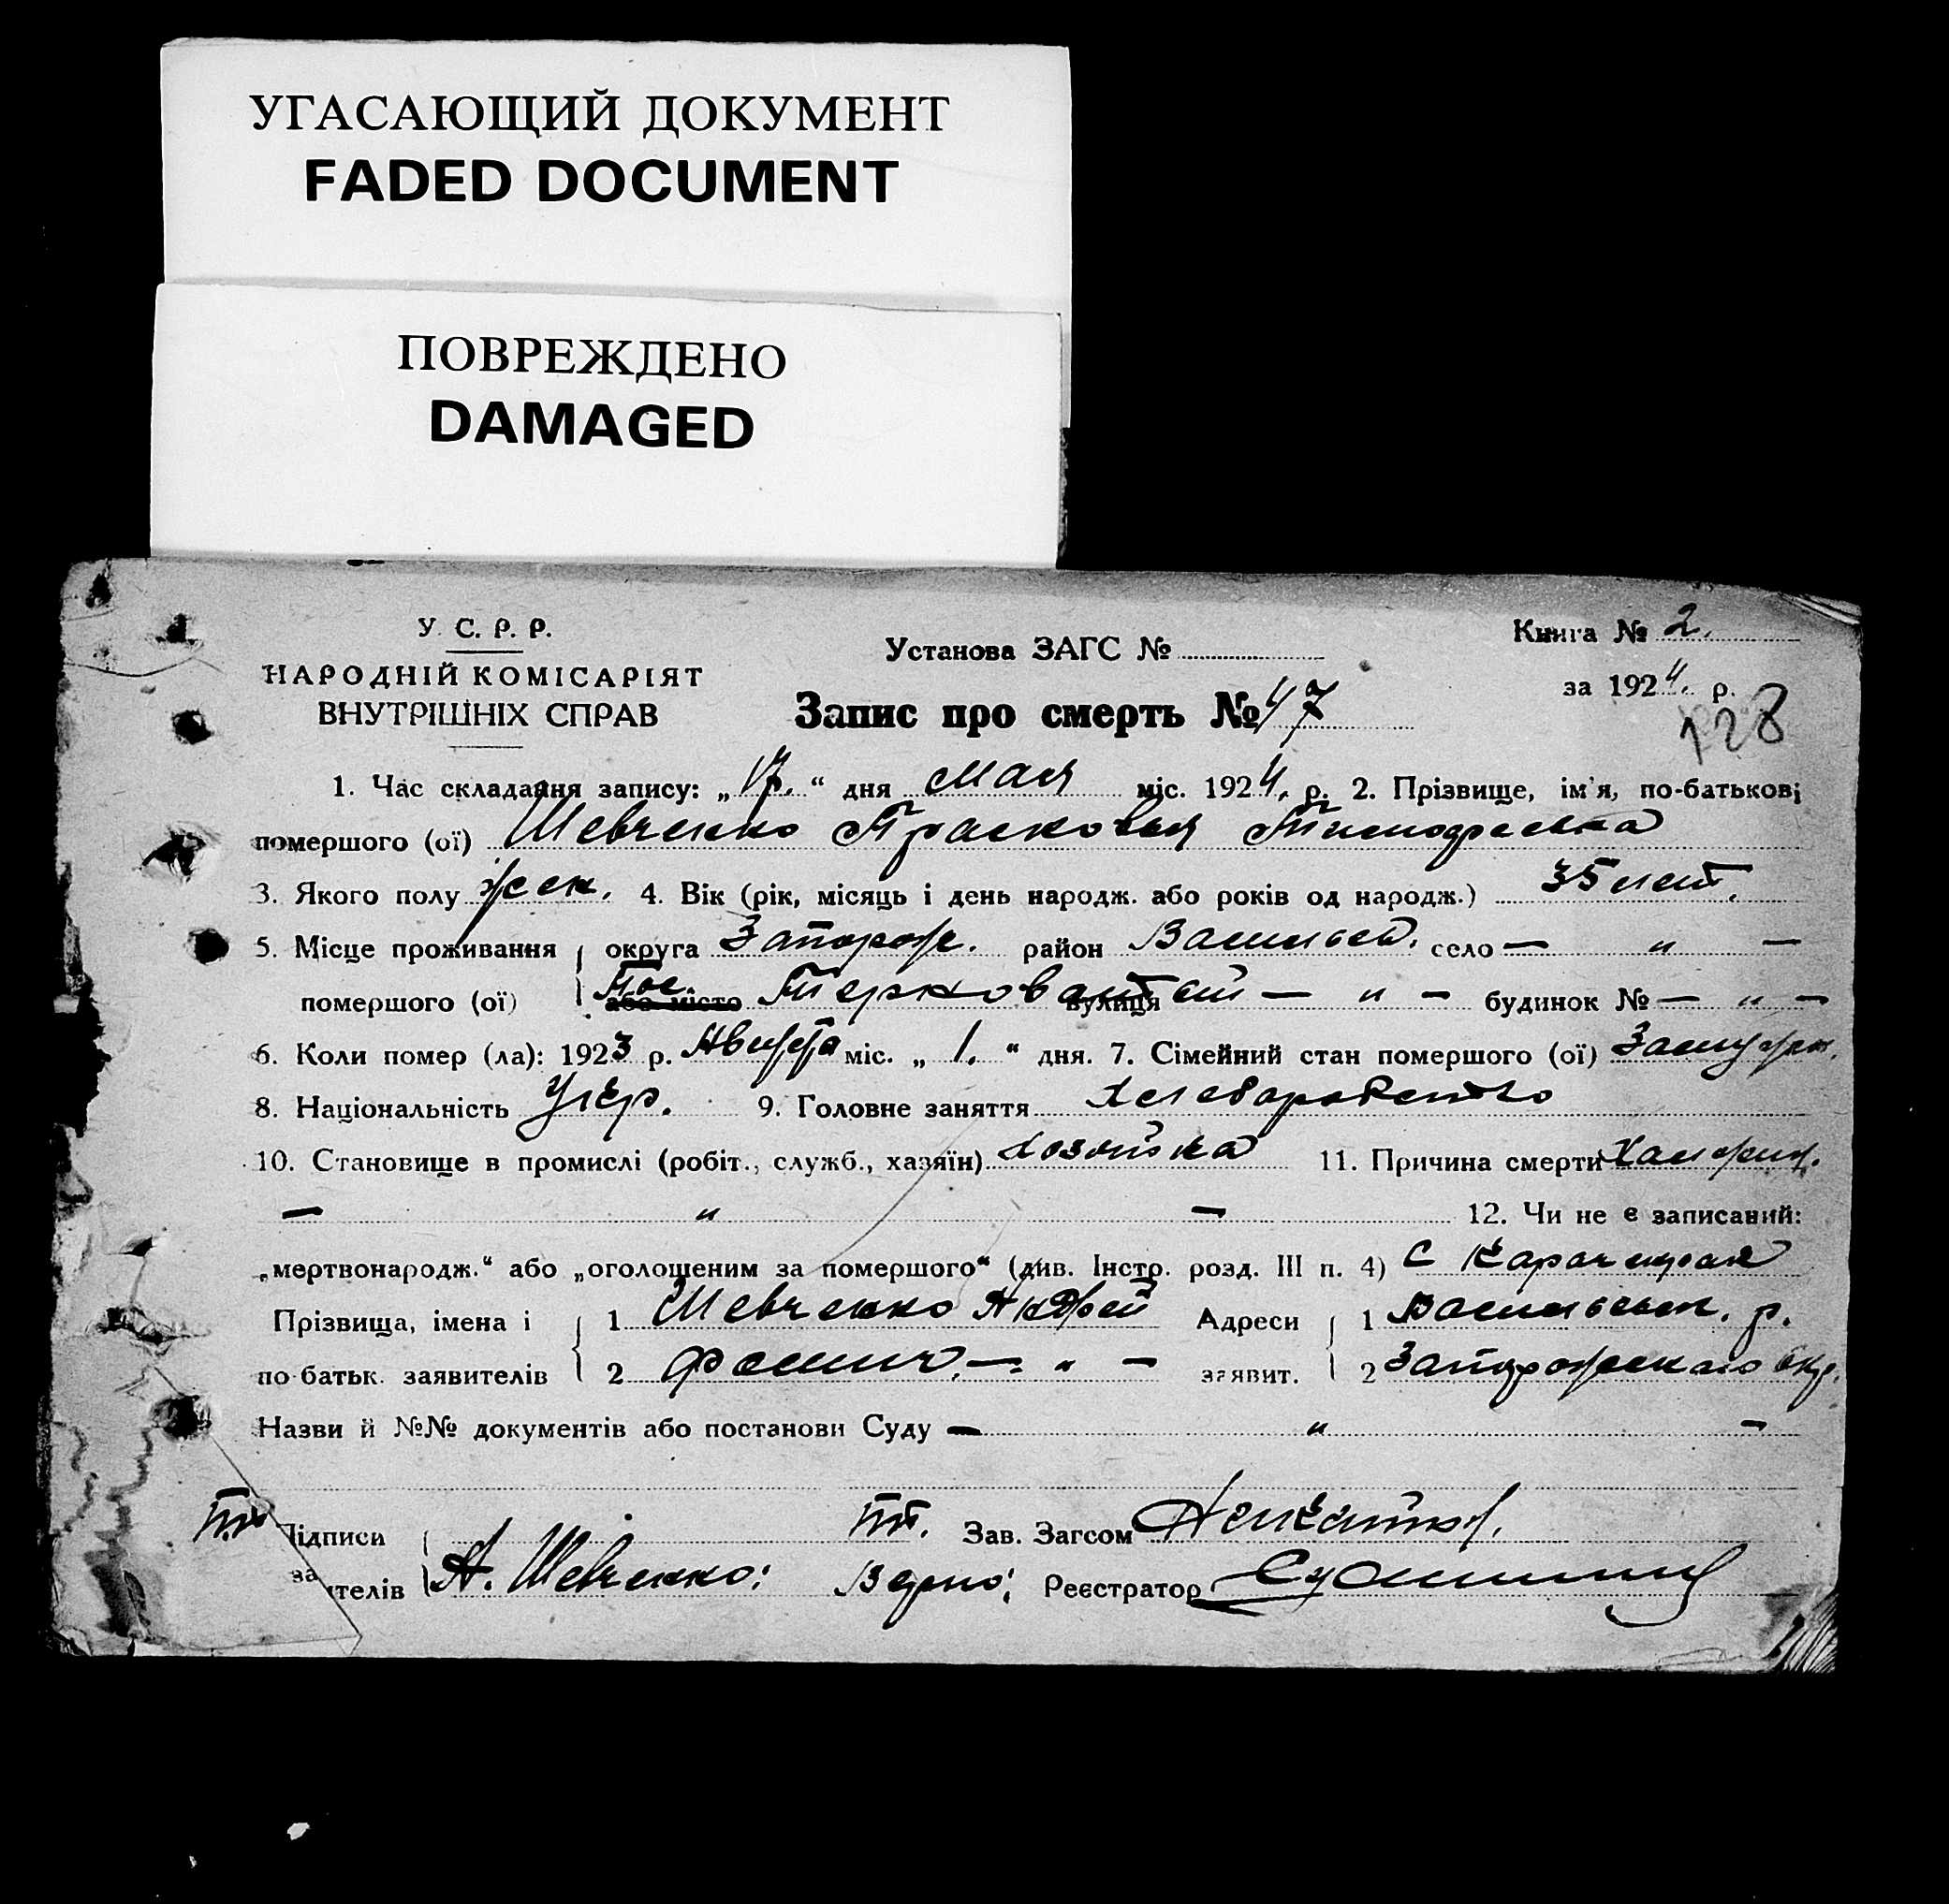 УГАСАЮЩИЙ ДОКУМЕНТ
FADED DOCUMENT
ПОВРЕЖДЕНО
DAMAGED
У. С. Р. Р.
НАРОДНІЙ КОМІСАРІЯТ
ВНУТРІШНІХ СПРАВ
Установа ЗАГС №
Книга № 2.
за 1924. р.
Запис про смерть № 47
128
1. Час складання запису: „17.“ дня Мая міс. 1924. р. 2. Прізвище, ім'я, по-батькові
помершого (ої) Шевченко Прасковья Тимофеевна
3. Якого полу жен. 4. Вік (рік, місяць і день народж. або років од народж.) 35 лет.
5. Місце проживання округа Запорож. район Васильев. село — „ —
помершого (ої) Пос. або місто вулиця — „ — будинок № — „ —
6. Коли помер (ла): 1923 р. Августа міс. „1.“ дня. 7. Сімейний стан помершого (ої) Замужн.
8. Національність Укр. 9. Головне заняття Хлеборобство
10. Становище в промислі (робіт., служб., хазяїн) хозяйка 11. Причина смерти
— „ — 12. Чи не є записаний:
„мертвонародж.“ або „оголошеним за помершого“ (див. Інстр. розд. III п. 4) с
Прізвища, імена і 1 Шевченко Андрей Адреси 1 Васильевск. р.
по-батьк. заявителів 2 — „ — заявит. 2 Запорожскаго Окр.
Назви й №№ документів або постанови Суду — „ —
п.п. Підписи п.п. Зав. Загсом
заятелів А. Шевченко: Верно: Реєстратор